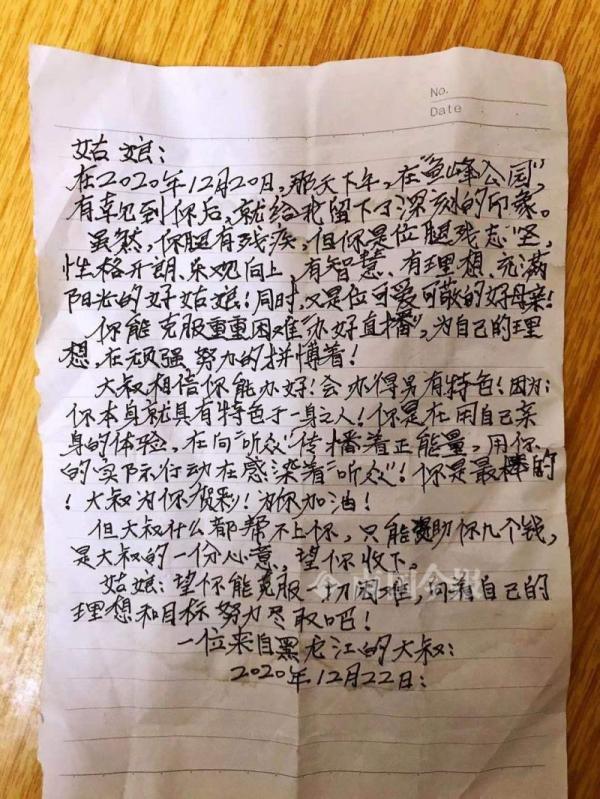 No.
Date
姑娘:
在2020年12月20日,那天下午,在"鱼峰公园",
有幸见到你后,就给我留下了深刻的印象。
虽然,你腿有残疾,但你是位腿残志坚,
性格开朗、乐观向上,有智慧、有理想、充满
阳光的好姑娘!同时,又是位可爱可敬的好母亲!
你能克服重重困难"办好直播",为自己的理
想,在顽强努力的拼博着!
大叔相信你能办好!会办得另有特色!因为:
你本身就具有特色于一身之人!你是在用自己亲
身的体验,在向"听众"传播着正能量,用你
的实际行动在感染着"听众"!你是最棒的
!大叔为你贺彩!为你加油!
但大叔什么都帮不上你,只能赞助你几个钱,
是大叔的一份心意,望你收下。
姑娘:望你能克服一切困难,向着自己的
理想和目标努力尽取吧!
一位来自黑龙江的大叔:
2020年12月22日:
南国今报